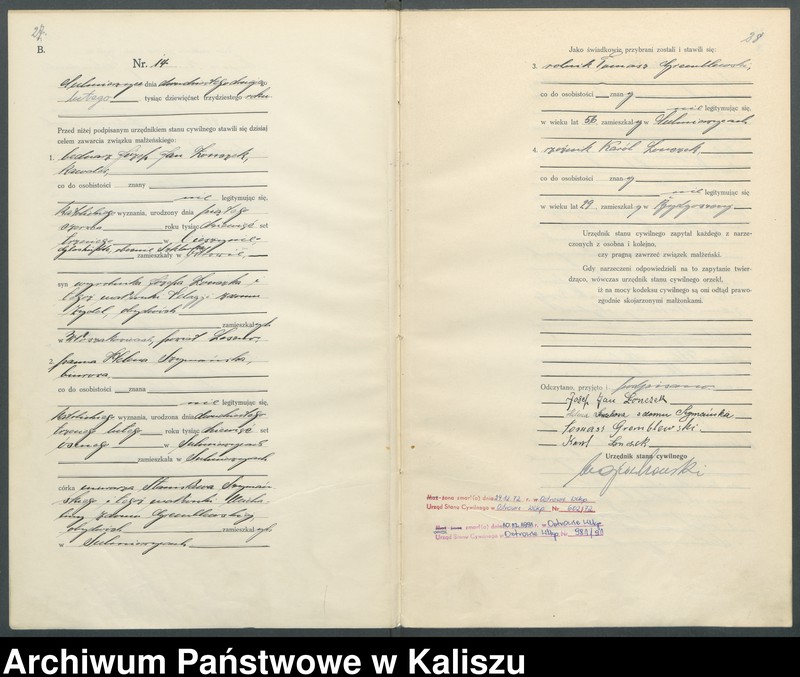 28.
B.
Nr. 14
Sulmierzyce dnia dwudziestego drugiego
lutego tysiąc dziewięćset trzydziestego roku
Przed niżej podpisanym urzędnikiem stanu cywilnego stawili się dzisiaj
celem zawarcia związku małżeńskiego:
1. bednarz Józef Jan Lonczek,
kawaler,
co do osobistości znany
nie legitymując się,
katolickiego wyznania, urodzony dnia piątego
roku tysiąc dziewięć set
w
zamieszkały w Ostrowie,
syn Józefa Lonczka i
jego małżonki
zamieszkałych
w powiat
2. Joanna Helena Szymańska,
co do osobistości znana
nie legitymując się,
katolickiego wyznania, urodzona dnia dwudziestego
lutego roku tysiąc dziewięć set
ósmego w Sulmierzycach
zamieszkała w Sulmierzycach
córka murarza Stanisława Szymań-
skiego i jego małżonki
z domu Gremblewskiej
zamieszkałych
w Sulmierzycach
28
Jako świadkowie przybrani zostali i stawili się:
3. rolnik Tomasz Gremblewski,
co do osobistości znany
nie legitymując się,
w wieku lat 56, zamieszkały w Sulmierzycach
4. Karól Lonczek
co do osobistości znany
nie legitymując się
w wieku lat 29, zamieszkały w Bydgoszczy
Urzędnik stanu cywilnego zapytał każdego z narze-
czonych z osobna i kolejno,
czy pragną zawrzeć związek małżeński.
Gdy narzeczeni odpowiedzieli na to zapytanie twier-
dząco, wówczas urzędnik stanu cywilnego orzekł,
iż na mocy kodeksu cywilnego są oni odtąd prawo-
zgodnie skojarzonymi małżonkami.
Odczytano, przyjęto i podpisano
Józef Jan Lonczek
z domu Szymańska
Tomasz Gremblewski
Karol Lonczek
Urzędnik stanu cywilnego
zmarł(a) dnia 29.12.72 r. w Ostrowie Wlkp
Urząd Stanu Cywilnego w Ostrowie Wlkp Nr 602/72
zmarł(a) dnia 10.12.1991 r. w Ostrowie Wlkp
Urząd Stanu Cywilnego w Ostrowie Wlkp Nr 981/91
Archiwum Państwowe w Kaliszu